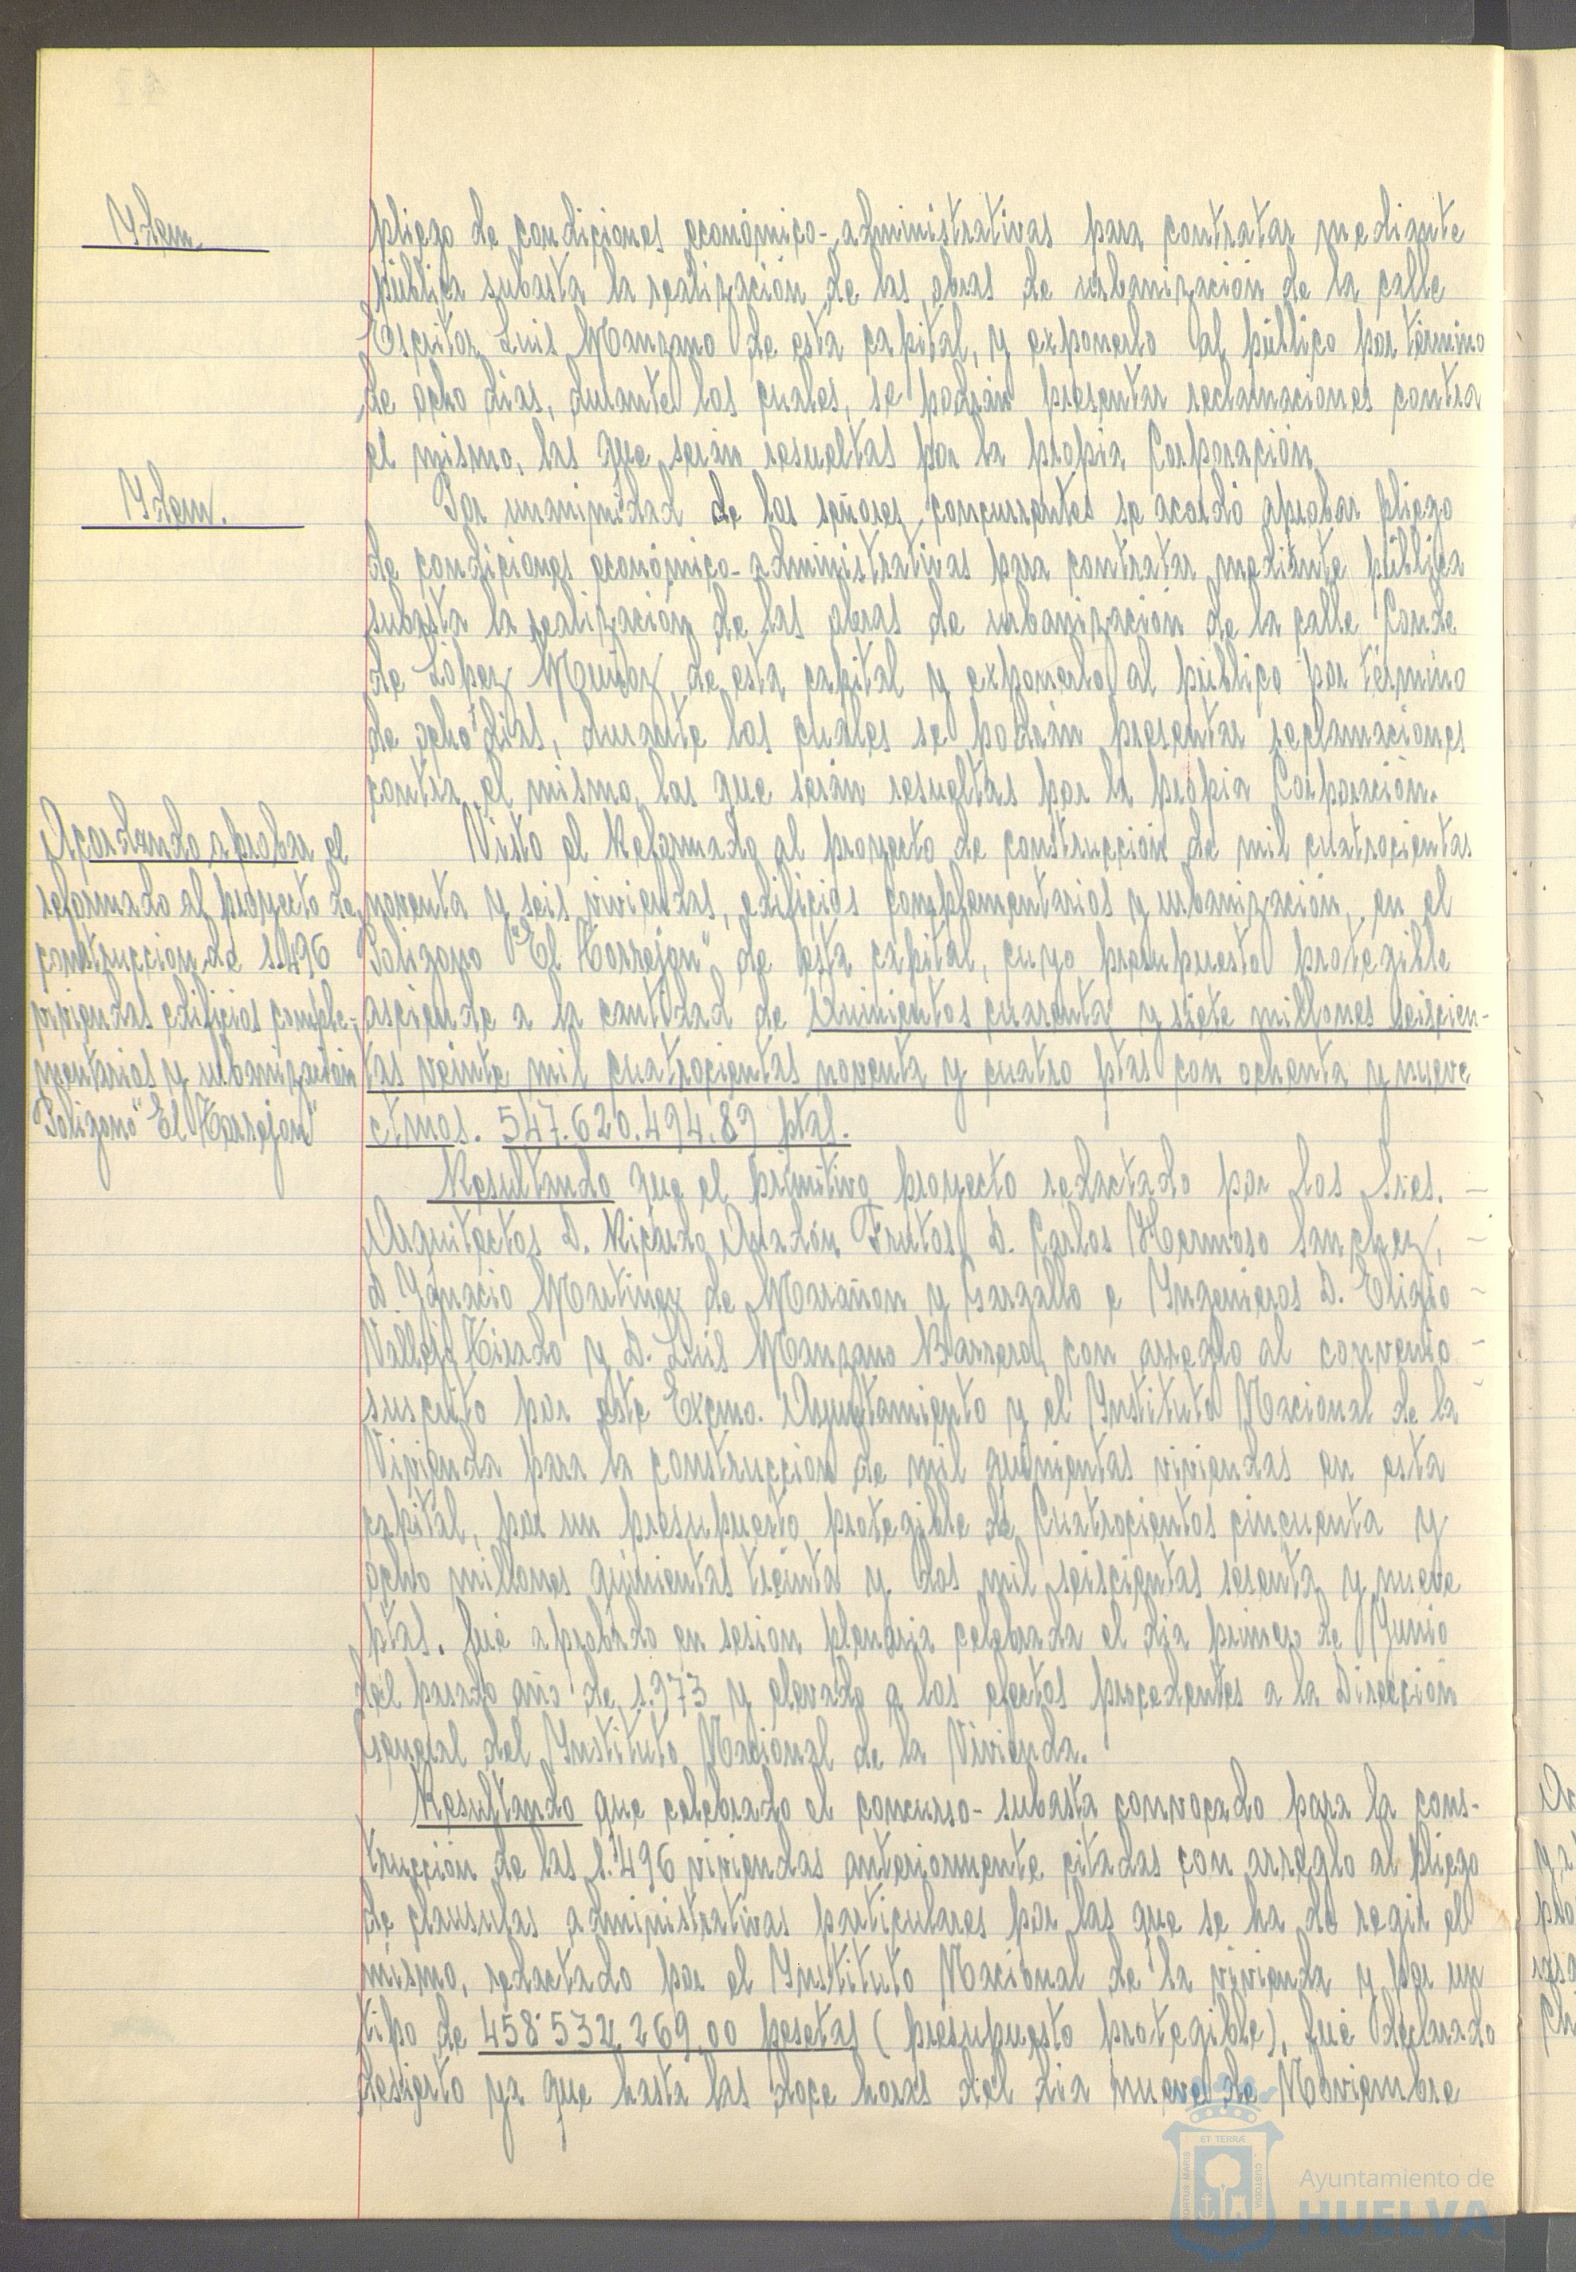 Ydem
pliego de condiciones económico-administrativas para contratar mediante
pública subasta la realización de las obras de urbanización de la calle
Escritor Luis Manzano de esta capital, y exponerlo al público por término
de ocho dias, durante los cuales, se podrán presentar reclamaciones contra
el mismo, las que serán resueltas por la propia Corporación
Ydem.
Por unanimidad de los señores concurrentes se acordó aprobar pliego
de condiciones económico-administrativas para contratar mediante pública
subasta la realización de las obras de urbanización de la calle Conde
de López Muñoz, de esta capital y exponerlo al público por término
de ocho dias, durante los cuales se podrán presentar reclamaciones
contra el mismo, las que serán resueltas por la propia Corporación.
Acordando aprobar el
reformado al proyecto de
construccion de 1.496
viviendas edificios comple-
mentarios y urbanización
Poligono "El Torrejon"
Visto el Reformado al proyecto de construcción de mil cuatrocientas
noventa y seis viviendas, edificios complementarios y urbanización, en el
Poligono "El Torrejon", de esta capital, cuyo presupuesto protegible
asciende a la cantidad de Quinientos cuarenta y siete millones seiscien-
tas veinte mil cuatrocientas noventa y cuatro ptas con ochenta y nueve
ctmos. 547.620.494,89 ptas.
Resultando que el primitivo proyecto redactado por los Sres.
Arquitectos D. Ricardo Anadón Frutos, D. Carlos Hermoso Sanchez,
D. Ygnacio Martinez de Marañon y Gargallo e Yngenieros D. Eligio
Vallejo Tirado y D. Luis Manzano Barrero, con arreglo al convenio
suscrito por este Excmo. Ayuntamiento y el Ynstituto Nacional de la
Vivienda para la construccion de mil quinientas viviendas en esta
capital, por un presupuesto protegible de Cuatrocientos cincuenta y
ocho millones quinientas treinta y dos mil seiscientas sesenta y nueve
ptas. fué aprobado en sesion plenaria celebrada el dia primero de Junio
del pasado año de 1.973 y elevado a los efectos procedentes a la Dirección
General del Ynstituto Nacional de la Vivienda.
Resultando que celebrado el concurso-subasta convocado para la cons-
trucción de las 1.496 viviendas anteriormente citadas con arreglo al pliego
de clausulas administrativas particulares por las que se ha de regir el
mismo, redactado por el Ynstituto Nacional de la vivienda y por un
tipo de 458.532.269,00 pesetas (presupuesto protegible), fué declarado
desierto ya que hasta las doce horas del dia nueve de Noviembre
ET TERRÆ
PORTUS MARIS
CUSTODIA
Ayuntamiento de
HUELVA